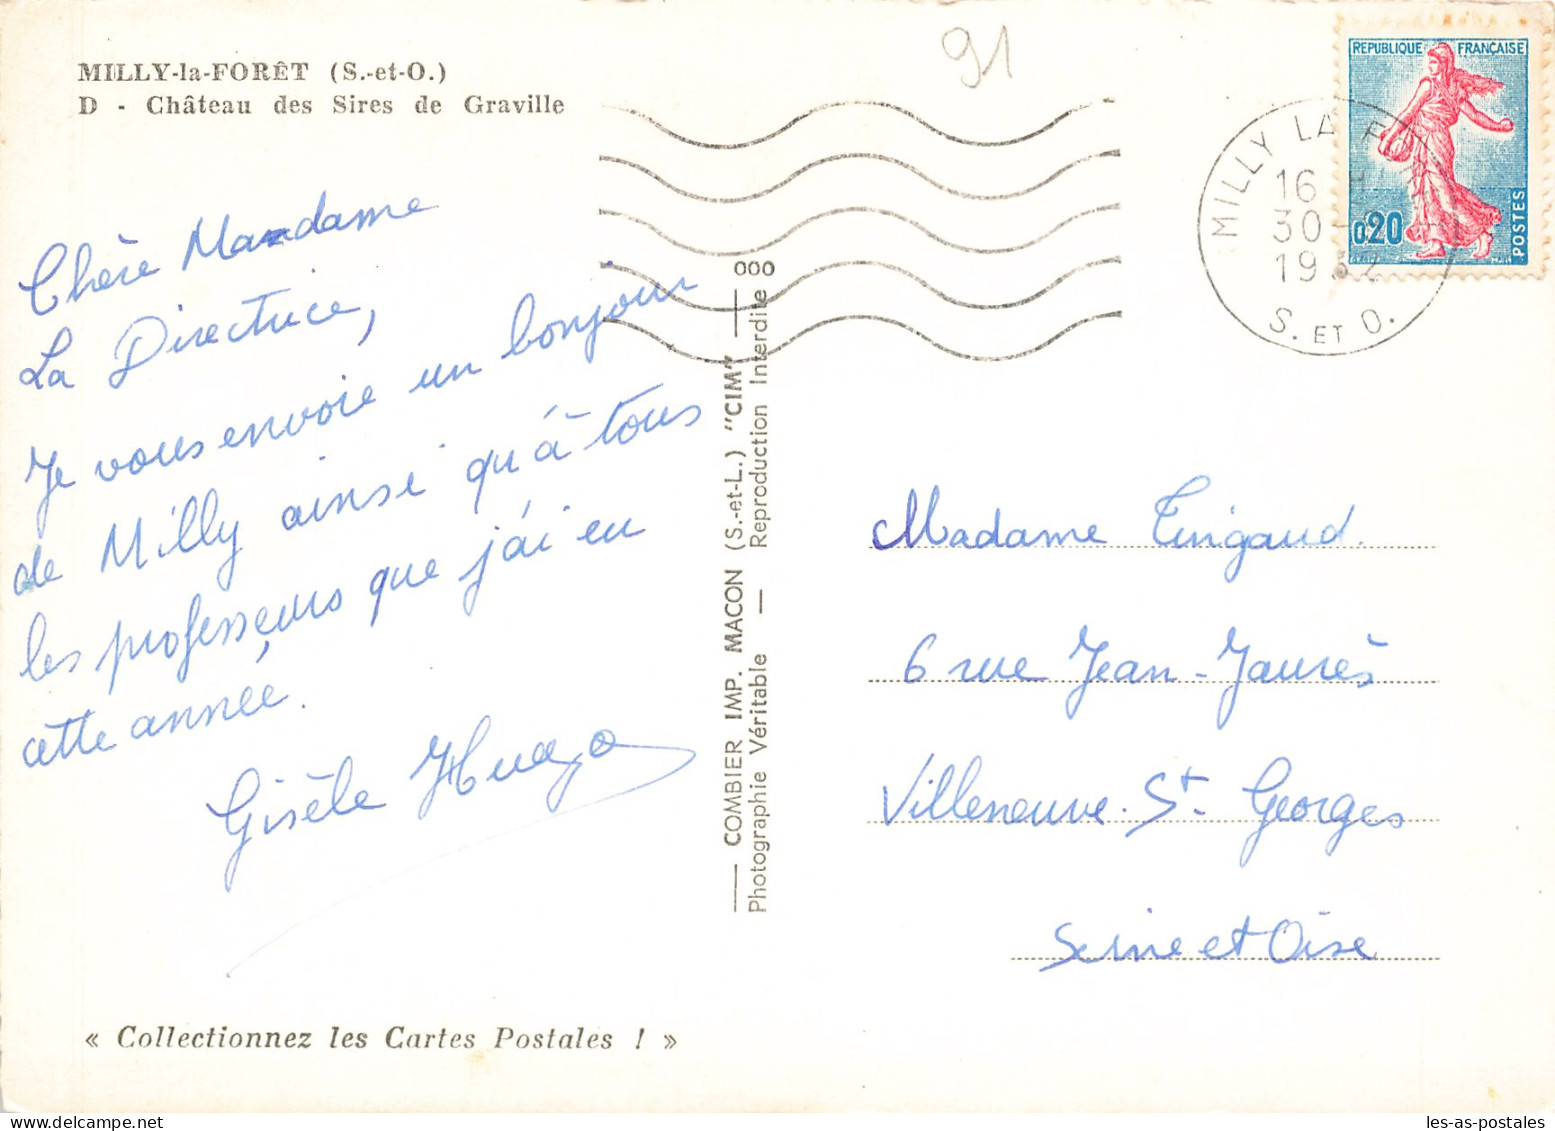 MILLY-la-FORÊT (S.-et-O.)
D - Château des Sires de Graville
91
REPUBLIQUE FRANÇAISE
0,20
POSTES
MILLY LA
16
30
19
S. ET O.
Chère Madame
La Directrice,
Je vous envoie un bonjour
de Milly ainsi qu'à tous
les professeurs que j'ai eu
cette année.
Gisèle
COMBIER IMP. MACON (S.-et-L.) "CIM"
Photographie Véritable — Reproduction Interdite
Madame
6 rue Jean-Jaurès
Villeneuve-St-Georges
Seine et Oise
« Collectionnez les Cartes Postales ! »
les-as-postales